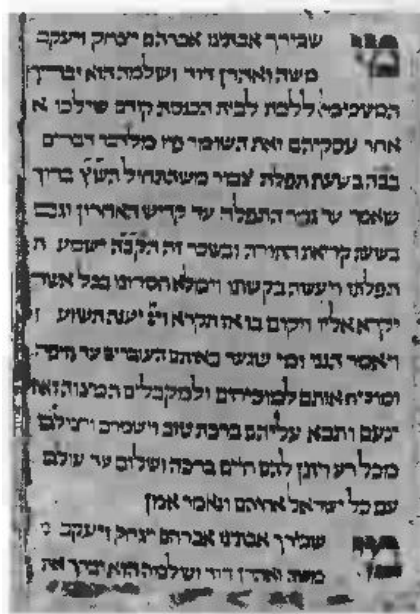 מי שבירך אבותינו אברהם יצחק ויעקב
משה ואהרן דוד ושלמה הוא יברך
המשכימי׳ ללכת לבית הכנסת קודם שילכו א
אחר עסקיהם ואת השומר פיו מלדבר דברים
בטלה בשעת תפלת צבור משהתחיל ברוך
שאמר עד גמר התפלה עד קדיש האחרון וגם
בשעת קריאת התורה ובשכר זה הקבה ישמע ת
תפלתו ויעשה בקשתו וימלא חסרונו בכל אשר
יקרא אליו ויקוים בו אז תקרא ויי׳ יענה תשוע
ויאמר הנני ומי שגוער באותם העוברים על
ומוכיח אותם למוכיחים ולמקבלים המצוה הזאת
ינעם ותבא עליהם ברכת טוב וישמרם ויצילם
מכל רע ויתן להם חיים ברכה ושלום עד עולם
עם כל ישראל אחיהם ונאמר אמן
מי שבירך אבותינו אברהם יצחק ויעקב
משה ואהרן דוד ושלמה הוא יברך את